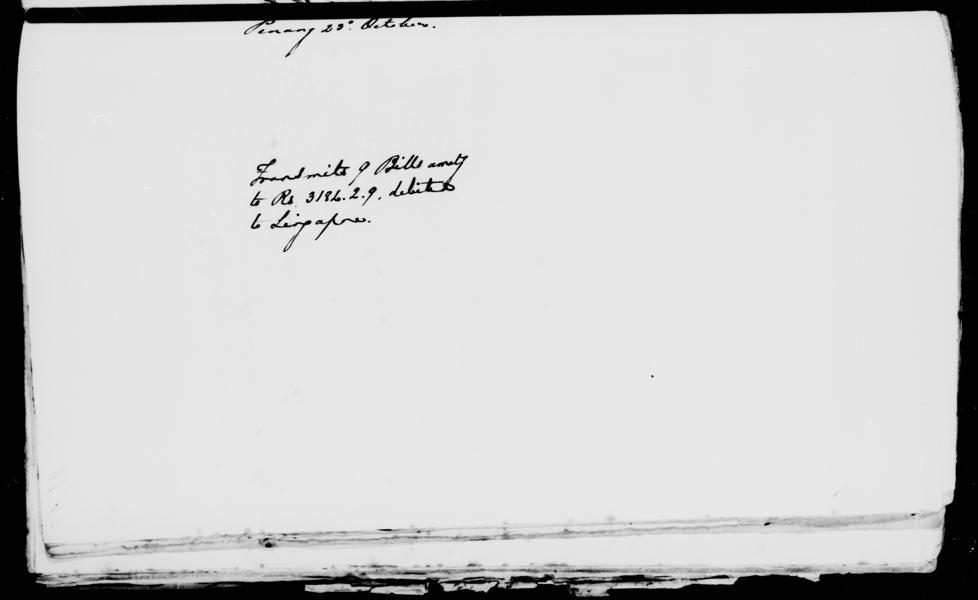 Penang 23d. October.
Transmits 9 Bills amotg
to Rs. 3186.2.9, debited
to Singapore.